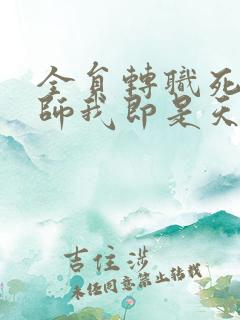 全員轉職死
師我即是天
吉住涉
未經同意禁止轉載